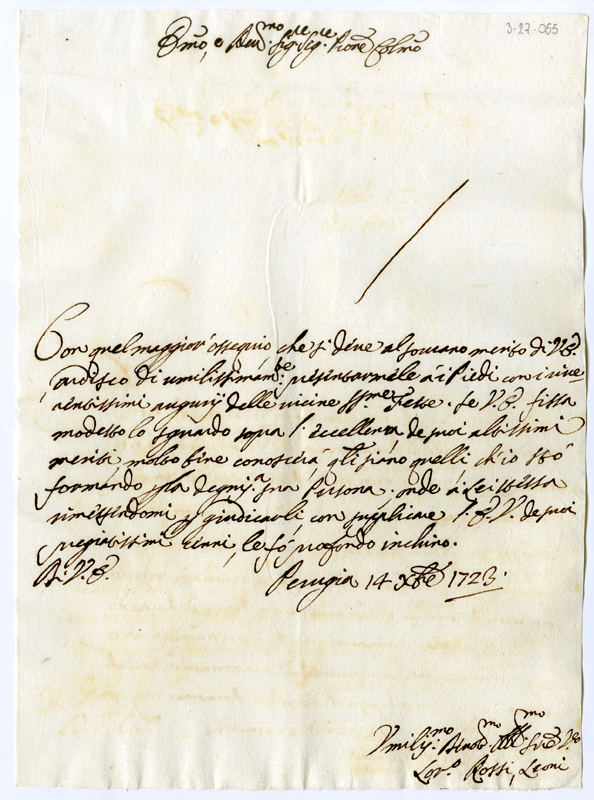 3-27-055
Emo, e Reu.mo Sig.re Sig.re Prone Colmo
Con quel maggior' ossequio che si deue al sourano merito di V.E.
ardisco di umilissimam.te presentarmele à i Piedi con i riue
rentissimi augurij delle vicine SS.me Feste. Se V.E. fissa
modesto lo sguardo sopra l'eccellenza de suoi altissimi
meriti, molto bene conoscerà qli siano quelli, ch'io stò
formando p la degniss.a sua Persona. onde à Lei stessa
rimettendomi p giudicarli con suplicare l'E.V. de suoi
pregiatissimi cenni, le fò profondo inchino.
Di V.E.
Perugia 14 Xbre 1723.
Vmiliss.mo Deuot.mo Obl.mo Sre V.o
Lor.o Rossi, Leoni